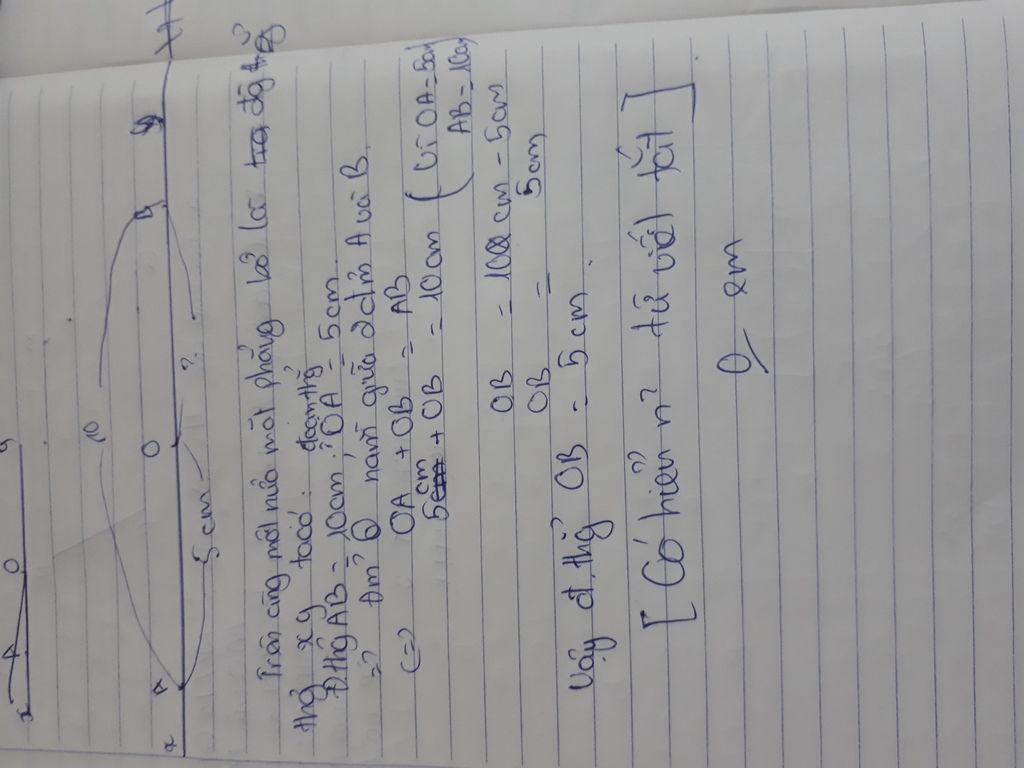 x A O y
10
x A O B y
5cm ?
Trên cùng một nửa mặt phẳng bờ là đg thẳng
thg xy taco: đoạn thg
Đ thg AB = 10cm; OA = 5cm
=> Đm O nằm giữa 2 đm A và B.
(=> OA + OB = AB
5cm + OB = 10cm ( Vì OA = 5cm
AB = 10cm
OB = 10cm - 5cm
OB = 5cm
Vậy đ. thg OB = 5cm.
[ Có hiểu n² từ viết tắt ]
em